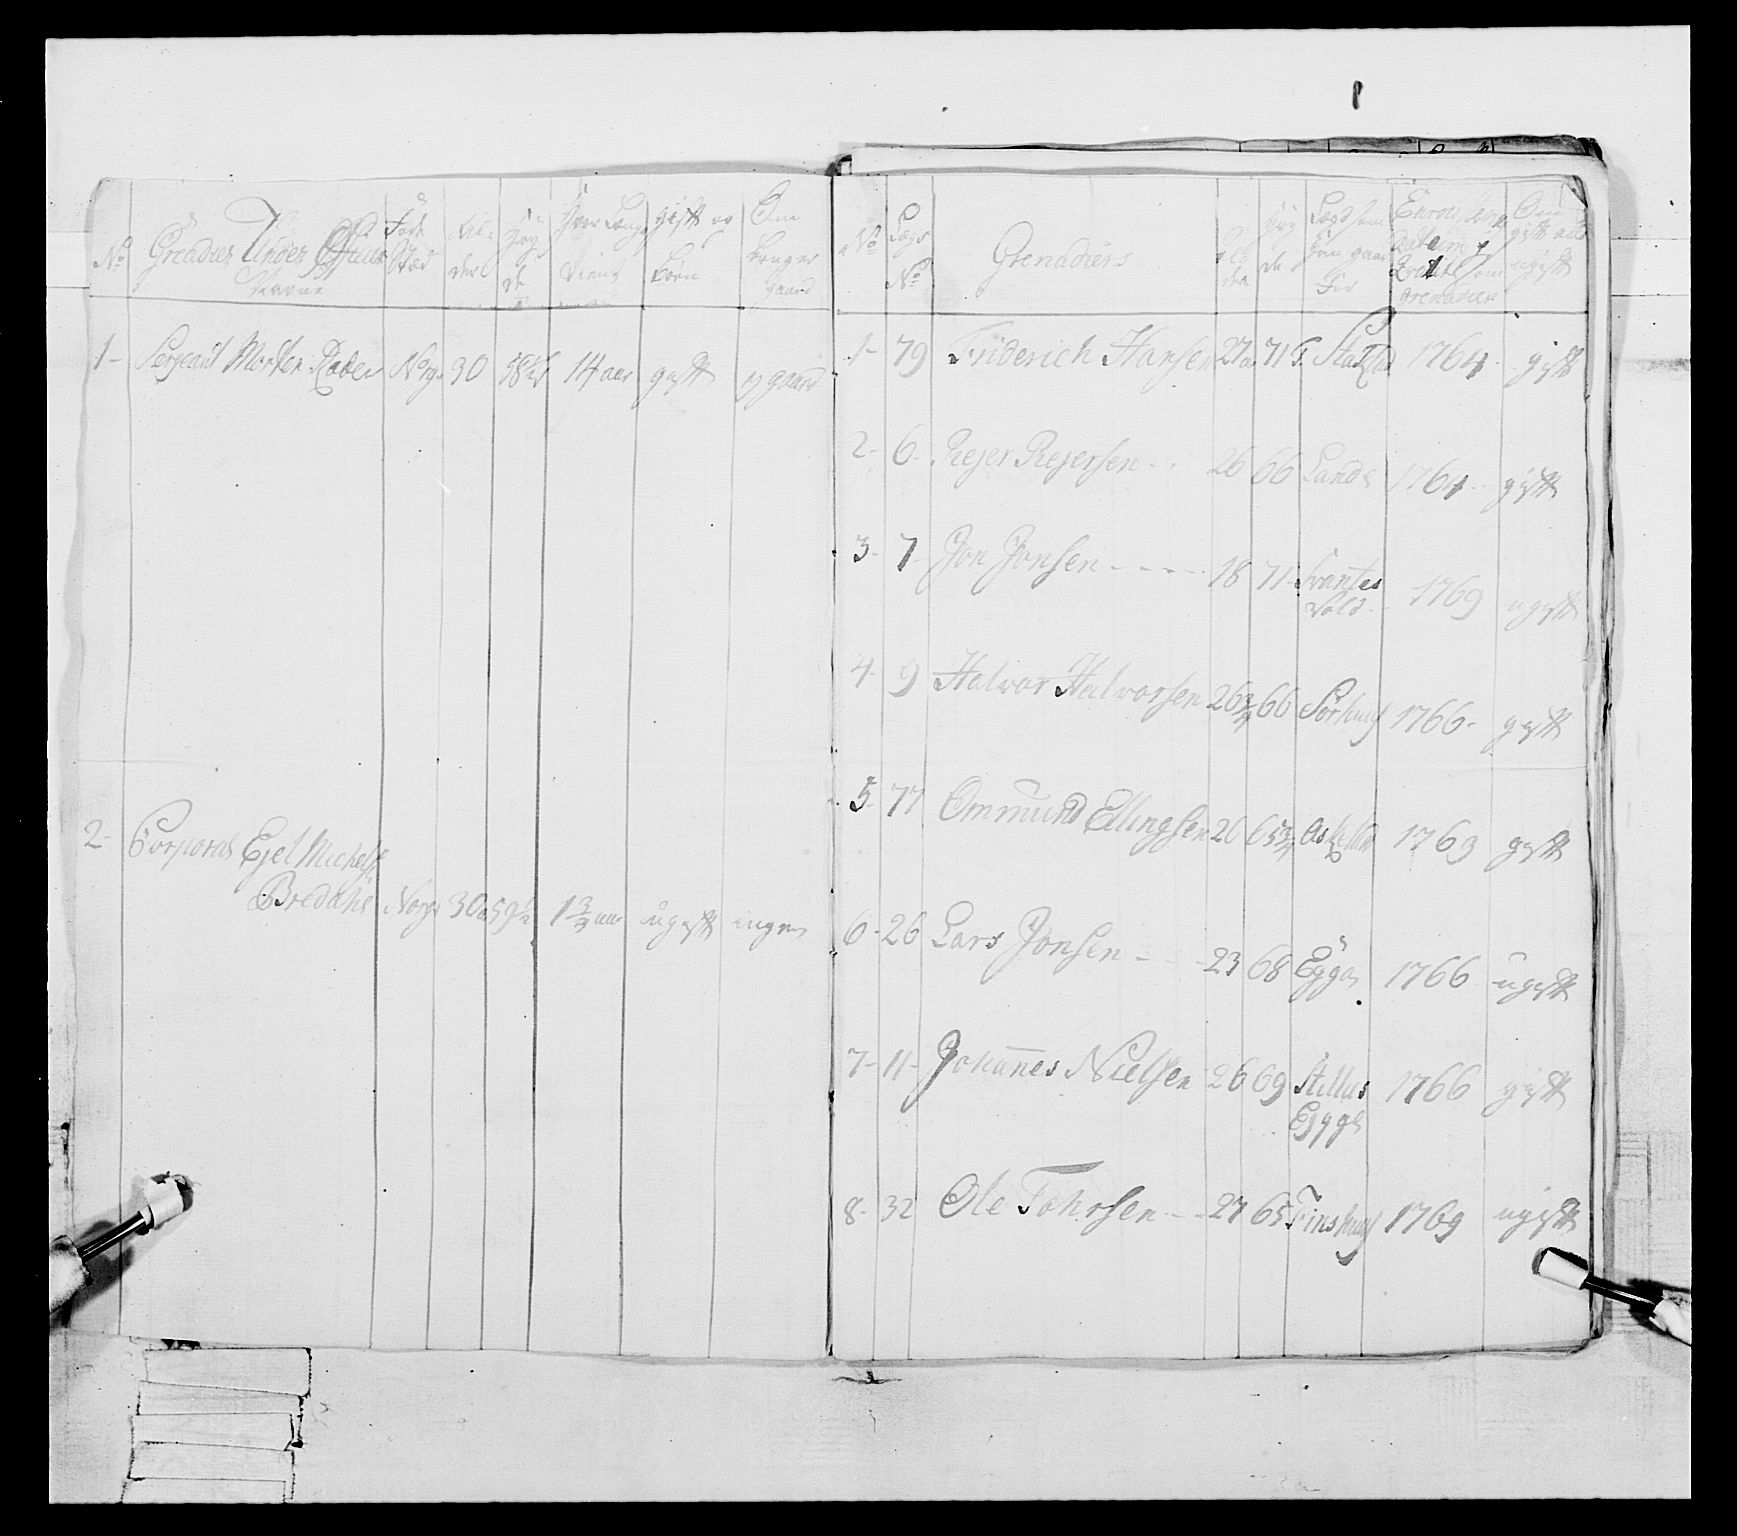 No
Grenadier Under Officer
Navne
Føde
Stæd
Al-
der
Høy
de
Hvor Lenge
Tient
gift og
børn
Om
bruger
gaard
1- Sergeant Morten Rader Norge 30 14 aar gift gaard
2- Corporal Ejel Michels:
Bredahl Norge 30 1¾ aar ugift ingen
No
Lægs
No
Grenadiers
Høy
de
Lægd som
Han gaar
For
grenadier
Om
gift eller
ugift
1- 79 Friderich Hansen 27 71 1764 gift
2- 6- Rejer Rejersen 26 66 Lande 1764 gift
3- 7- Jon Jonsen 18 71 Frantzs
vold 1769 ugift
4- 9 Halvor Halvorsen 26¾ 66 Sørhuus 1766- gift
5- 77 Ommund Ellingsen 26 65¾ 1763 gift
6- 26 Lars Jonsen 23 68 Egge 1766 ugift
7- 11- Johannes Nielsen 26 69 Stillus
Egge 1766 gift
8- 32 Ole Tohrsen 27 65 Finshuus 1769 ugift